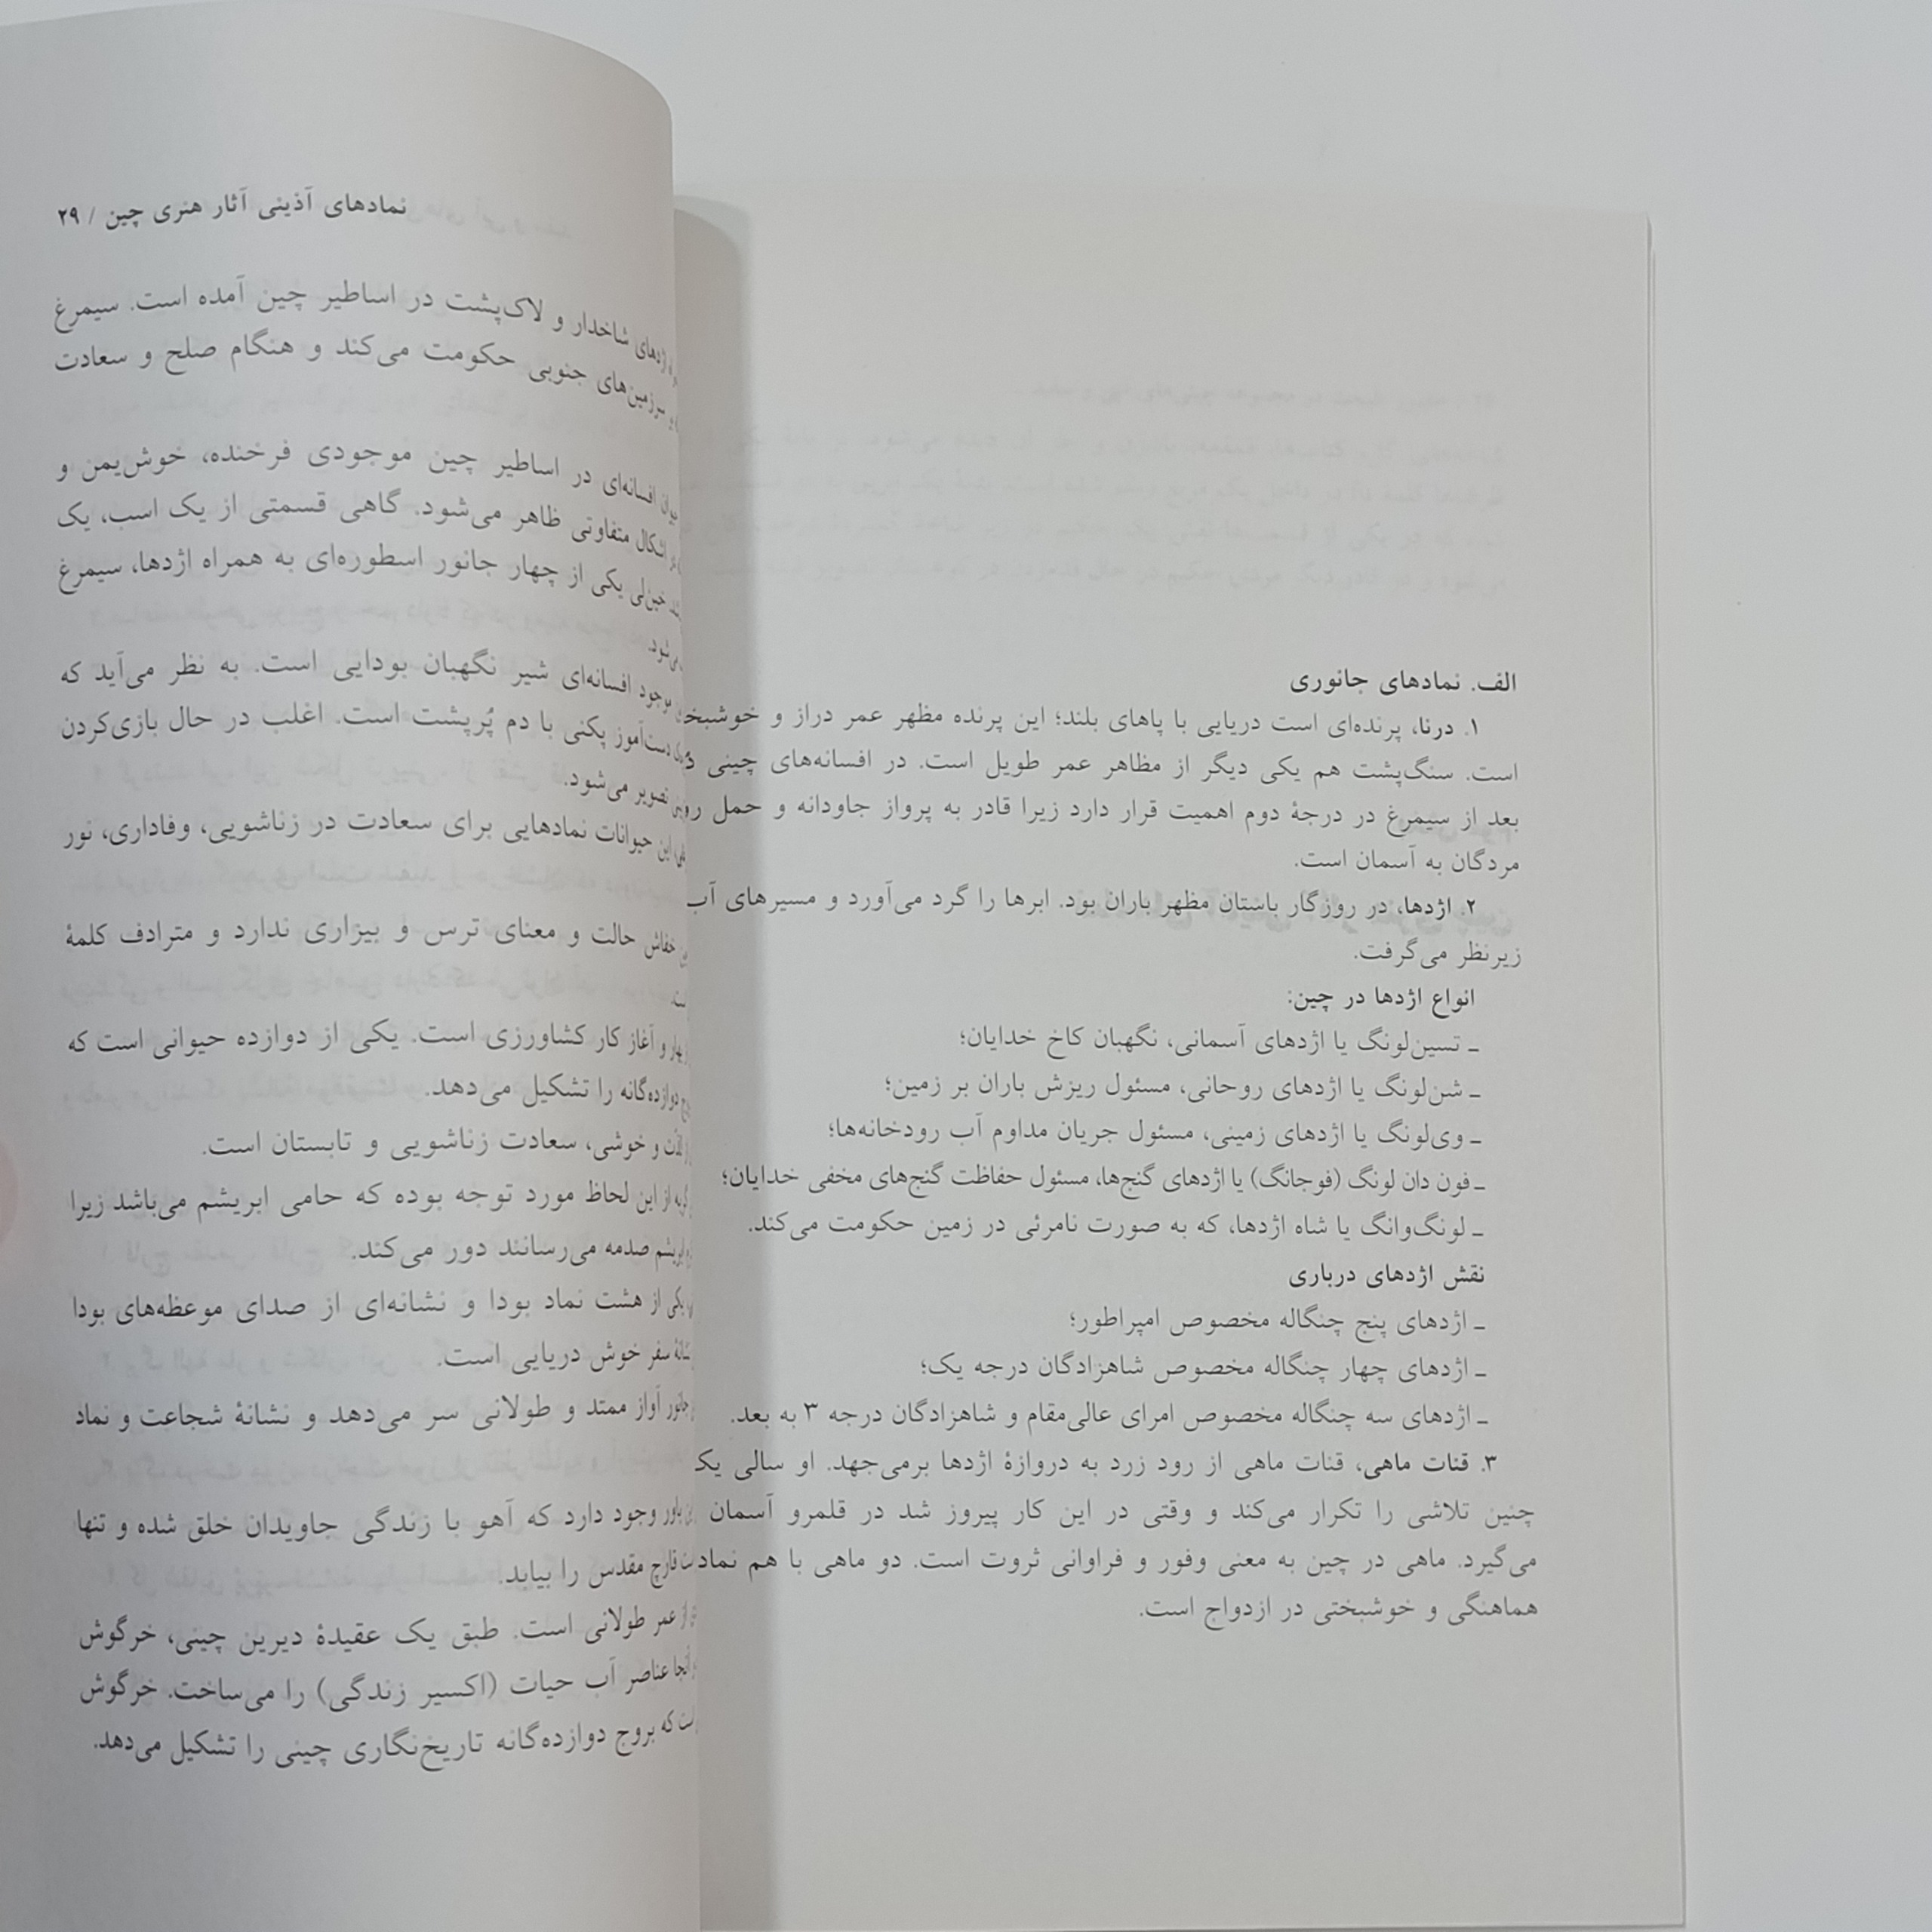 الف. نمادهای جانوری
۱. درنا، پرنده‌ای است دریایی با پاهای بلند؛ این پرنده مظهر عمر دراز و
است. سنگ‌پشت هم یکی دیگر از مظاهر عمر طویل است. در افسانه‌های چینی
بعد از سیمرغ در درجهٔ دوم اهمیت قرار دارد زیرا قادر به پرواز جاودانه و حمل
مردگان به آسمان است.
۲. اژدها، در روزگار باستان مظهر باران بود. ابرها را گرد می‌آورد و مسیرهای آب
زیرنظر می‌گرفت.
انواع اژدها در چین:
ـ تسین‌لونگ یا اژدهای آسمانی، نگهبان کاخ خدایان؛
ـ شن‌لونگ یا اژدهای روحانی، مسئول ریزش باران بر زمین؛
ـ وی‌لونگ یا اژدهای زمینی، مسئول جریان مداوم آب رودخانه‌ها؛
ـ فون دان لونگ (فوجانگ) یا اژدهای گنج‌ها، مسئول حفاظت گنج‌های مخفی خدایان؛
ـ لونگ‌وانگ یا شاه اژدها، که به صورت نامرئی در زمین حکومت می‌کند.
نقش اژدهای درباری
ـ اژدهای پنج چنگاله مخصوص امپراطور؛
ـ اژدهای چهار چنگاله مخصوص شاهزادگان درجه یک؛
ـ اژدهای سه چنگاله مخصوص امرای عالی‌مقام و شاهزادگان درجه ۳ به بعد.
۳. قنات ماهی، قنات ماهی از رود زرد به دروازهٔ اژدها برمی‌جهد. او سالی یک
چنین تلاشی را تکرار می‌کند و وقتی در این کار پیروز شد در قلمرو آسمان
می‌گیرد. ماهی در چین به معنی وفور و فراوانی ثروت است. دو ماهی با هم نماد
هماهنگی و خوشبختی در ازدواج است.
نمادهای آذینی آثار هنری چین / ۲۹
اژدهای شاخدار و لاک‌پشت در اساطیر چین آمده است. سیمرغ
سرزمین‌های جنوبی حکومت می‌کند و هنگام صلح و سعادت
افسانه‌ای در اساطیر چین موجودی فرخنده، خوش‌یمن و
اشکال متفاوتی ظاهر می‌شود. گاهی قسمتی از یک اسب، یک
یکی از چهار جانور اسطوره‌ای به همراه اژدها، سیمرغ
می‌شود.
موجود افسانه‌ای شیر نگهبان بودایی است. به نظر می‌آید که
دست‌آموز پکنی با دم پُرپشت است. اغلب در حال بازی‌کردن
تصویر می‌شود.
این حیوانات نمادهایی برای سعادت در زناشویی، وفاداری، نور
خفاش حالت و معنای ترس و بیزاری ندارد و مترادف کلمهٔ
و آغاز کار کشاورزی است. یکی از دوازده حیوانی است که
دوازده‌گانه را تشکیل می‌دهد.
و خوشی، سعادت زناشویی و تابستان است.
از این لحاظ مورد توجه بوده که حامی ابریشم می‌باشد زیرا
ابریشم صدمه می‌رسانند دور می‌کند.
یکی از هشت نماد بودا و نشانه‌ای از صدای موعظه‌های بودا
سفر خوش دریایی است.
جانور آواز ممتد و طولانی سر می‌دهد و نشانهٔ شجاعت و نماد
باور وجود دارد که آهو با زندگی جاویدان خلق شده و تنها
قارچ مقدس را بیابد.
از عمر طولانی است. طبق یک عقیدهٔ دیرین چینی، خرگوش
آنجا عناصر آب حیات (اکسیر زندگی) را می‌ساخت. خرگوش
که بروج دوازده‌گانه تاریخ‌نگاری چینی را تشکیل می‌دهد.